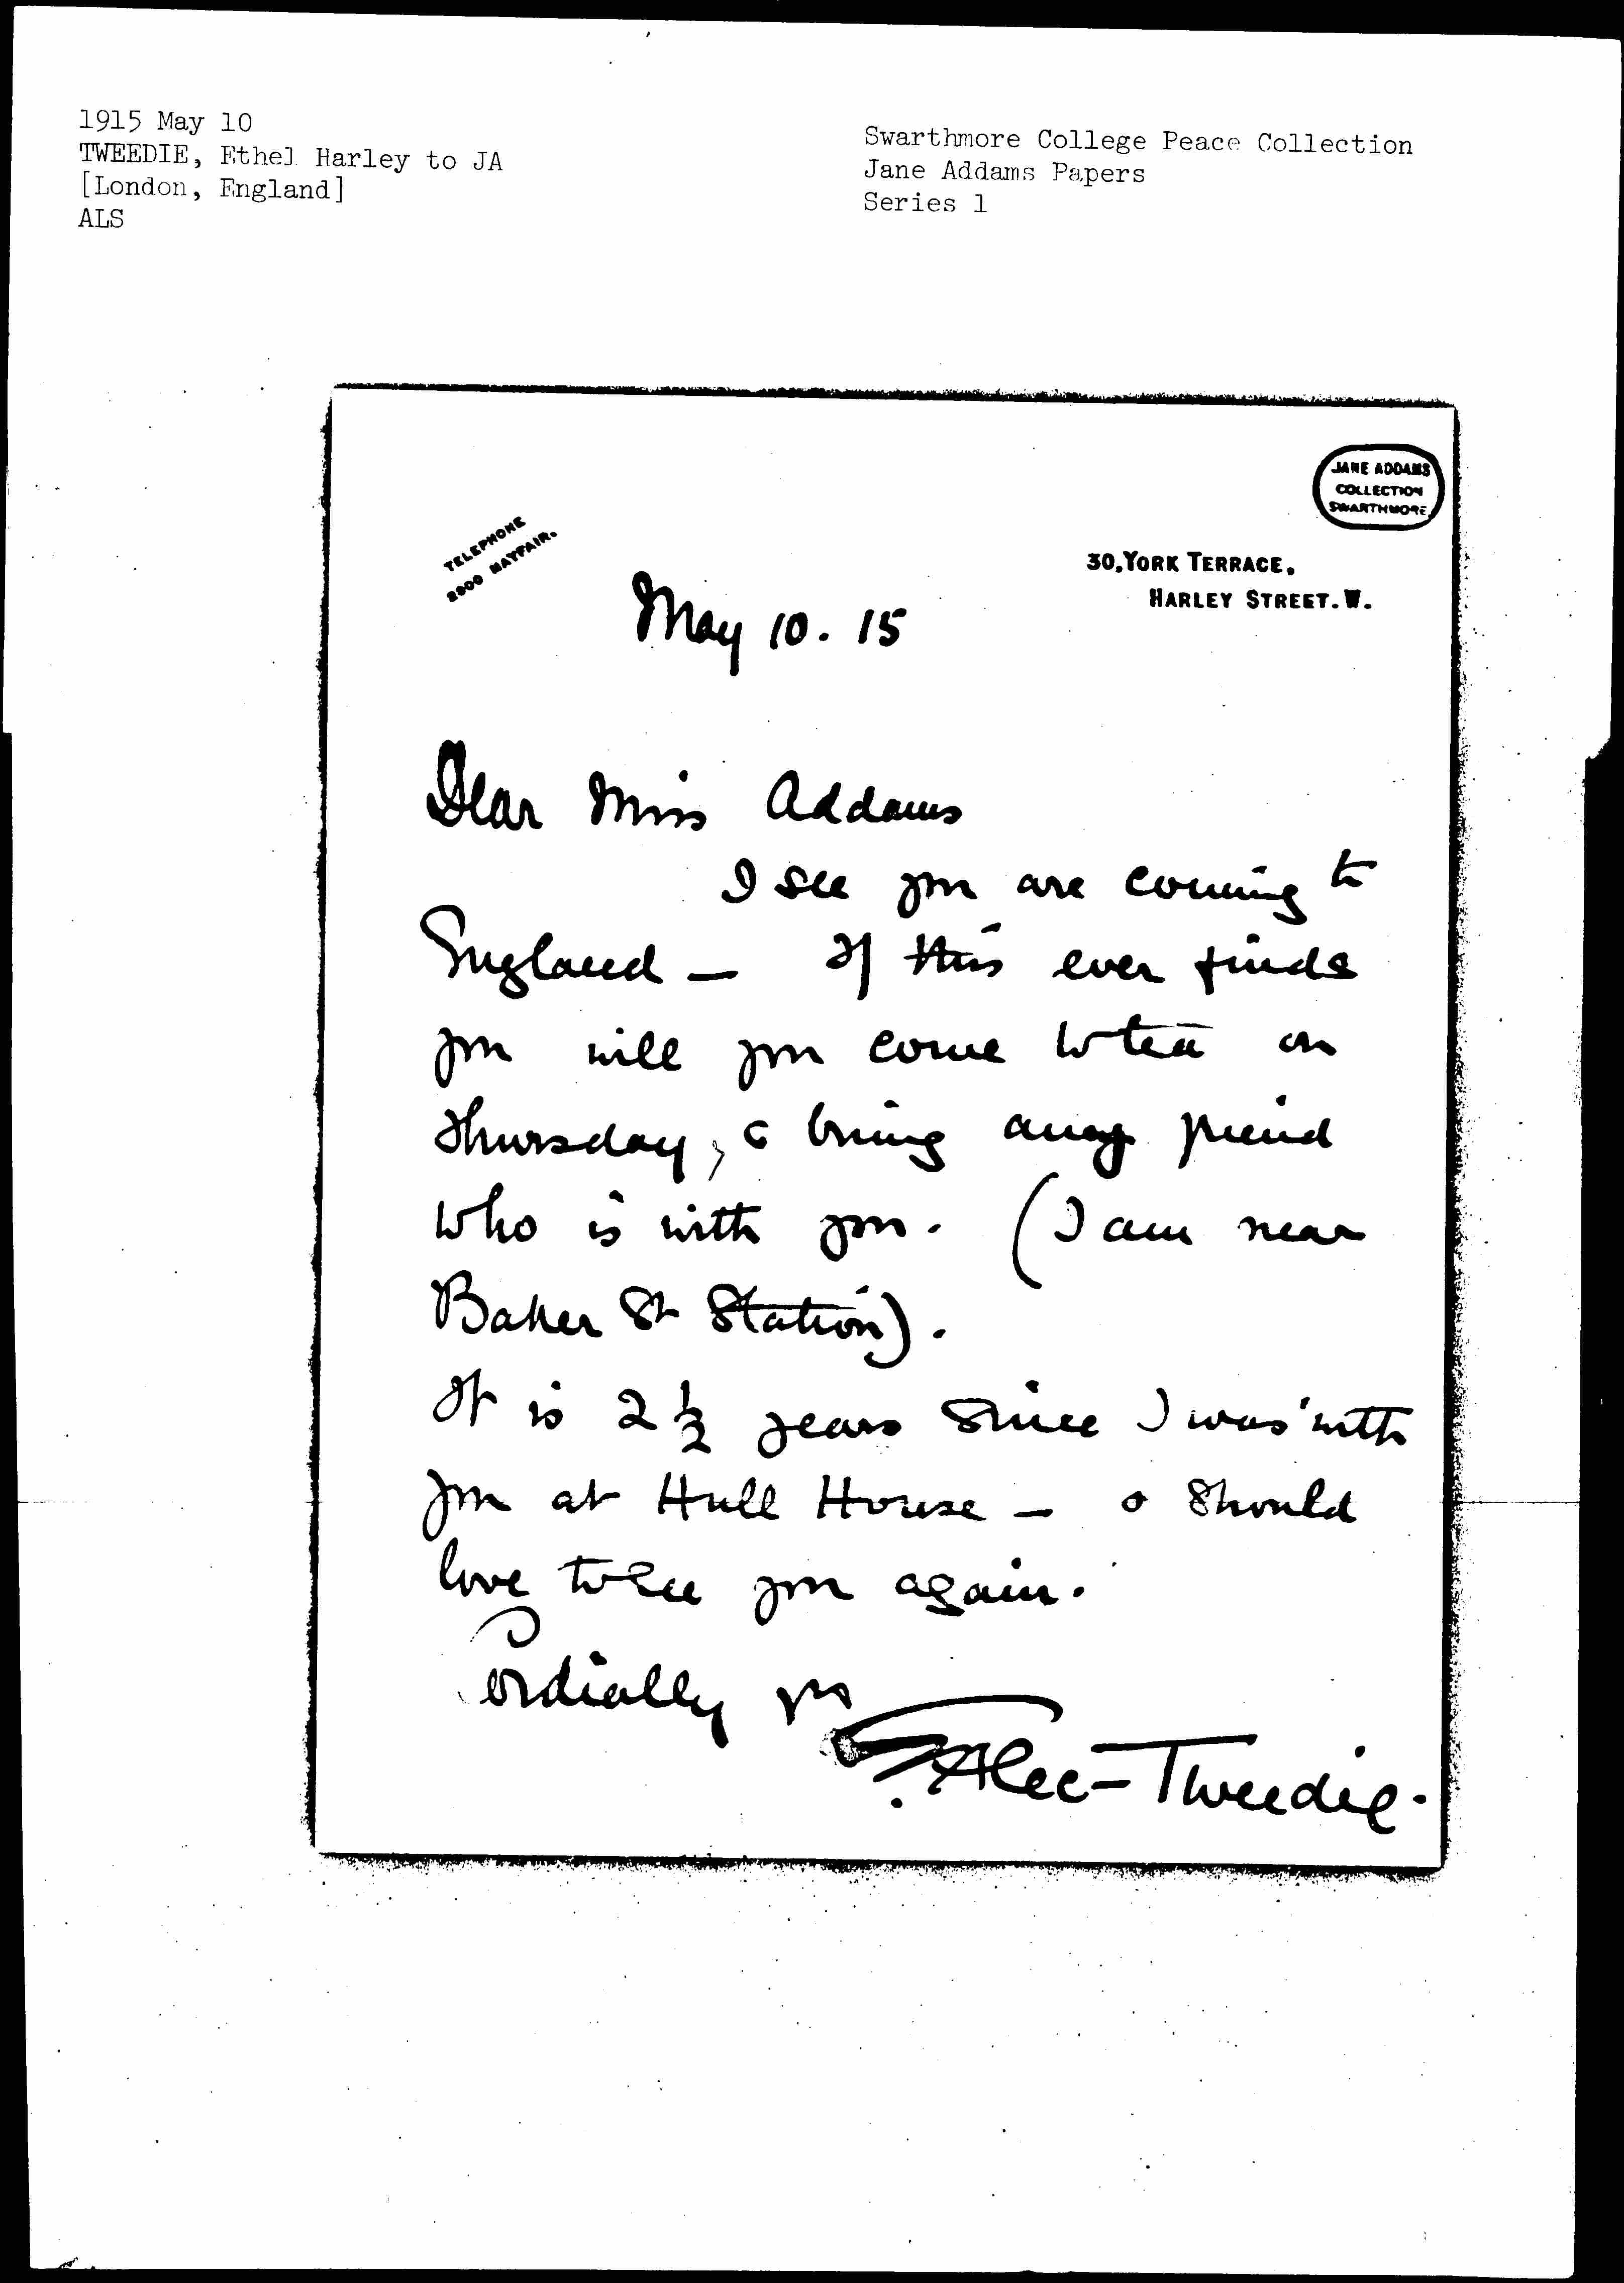 1915 May 10
TWEEDIE, Ethel Harley to JA
[London, England]
ALS
Swarthmore College Peace Collection
Jane Addams Papers
Series 1
JANE ADDAMS
COLLECTION
SWARTHMORE
TELEPHONE
2900 MAYFAIR.
30, YORK TERRACE,
HARLEY STREET. W.
May 10. 15
Dear Miss Addams
I see you are coming to
England — If this ever finds
you will you come to tea on
Thursday, & bring any friend
who is with you. (I am near
Baker St Station).
It is 2½ years since I was with
you at Hull House — & should
love to see you again.
Cordially yrs
E Alec-Tweedie.